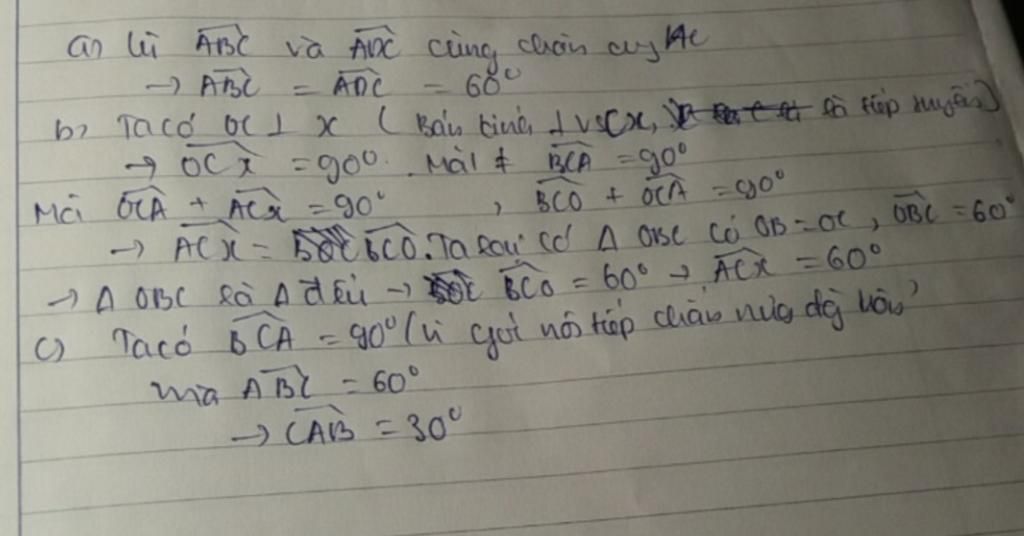 a) Vì ABC và ADC cùng chắn cung AC
→ ABC = ADC = 60°
b) Ta có OC ⊥ x ( Bán kính ⊥ vs Cx, là tiếp tuyến)
→ OCx = 90°. Mặt ≠ BCA = 90°
Mà OCA + ACx = 90° , BCO + OCA = 90°
→ ACx = BCO. Ta lại có Δ OBC có OB = OC, OBC = 60°
→ Δ OBC là Δ đều → BCO = 60° → ACx = 60°
c) Ta có BCA = 90° (vì góc nội tiếp chắn nửa đg tròn)
mà ABC = 60°
→ CAB = 30°